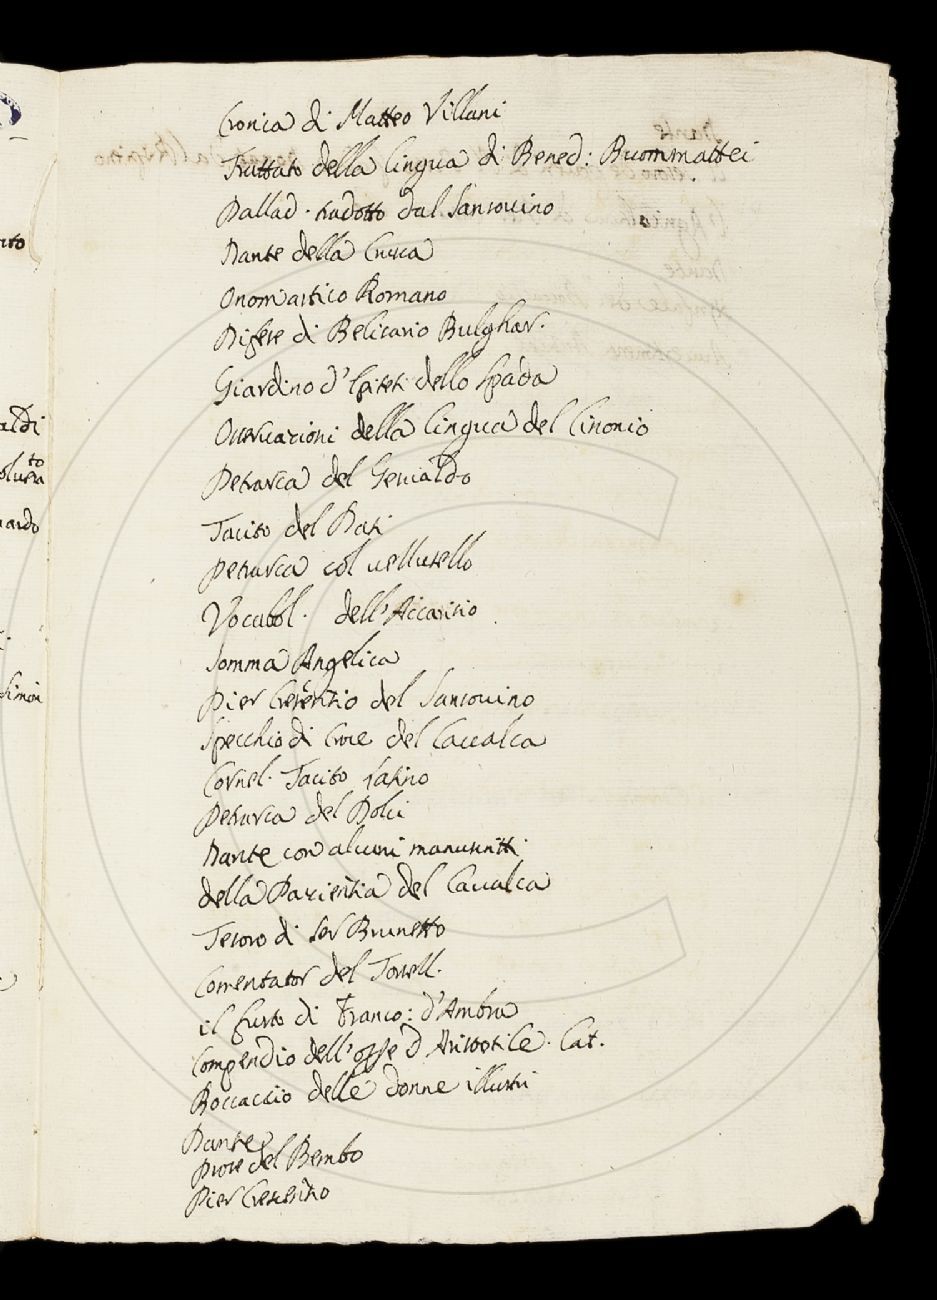 Cronica di Matteo Villani
Trattato della lingua di Bened: Buommattei
Pallad. tradotto dal Sansouino
Dante della Crusca
Onomastico Romano
Difese di Belisario Bulghar.
Giardino d'Epiteti dello Spada
Osseruazioni della lingua del Cinonio
Petrarca del Gesualdo
Tacito del Dati
Petrarca col uellutello
Vocabol. dell'Accarisio
Somma Angelica
Pier Cresentio del Sansouino
Specchio di Croce del Caualca
Cornel. Tacito latino
Petrarca del Dolci
Dante con alcuni manuscritti
della Pazientia del Caualca
Tesoro di ser Brunetto
Comentator del
il furto di Franco: d'Ambra
Compendio dell'opre d'Aristotile. Lat.
Boccaccio delle donne illustri
Dante
Prose del Bembo
Pier Crescentio
aldi
to
nardo
simon